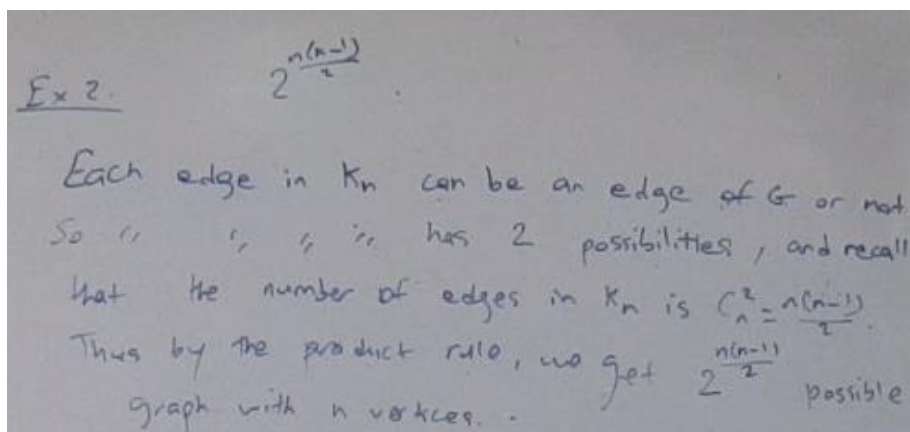 Ex 2. 2^{\frac{n(n-1)}{2}}.
Each edge in Kn can be an edge of G or not
So ,, ,, ,, ,, has 2 possibilities, and recall
that the number of edges in Kn is C_n^2 = \frac{n(n-1)}{2}.
Thus by the product rule, we get 2^{\frac{n(n-1)}{2}} possible
graph with n vertices.